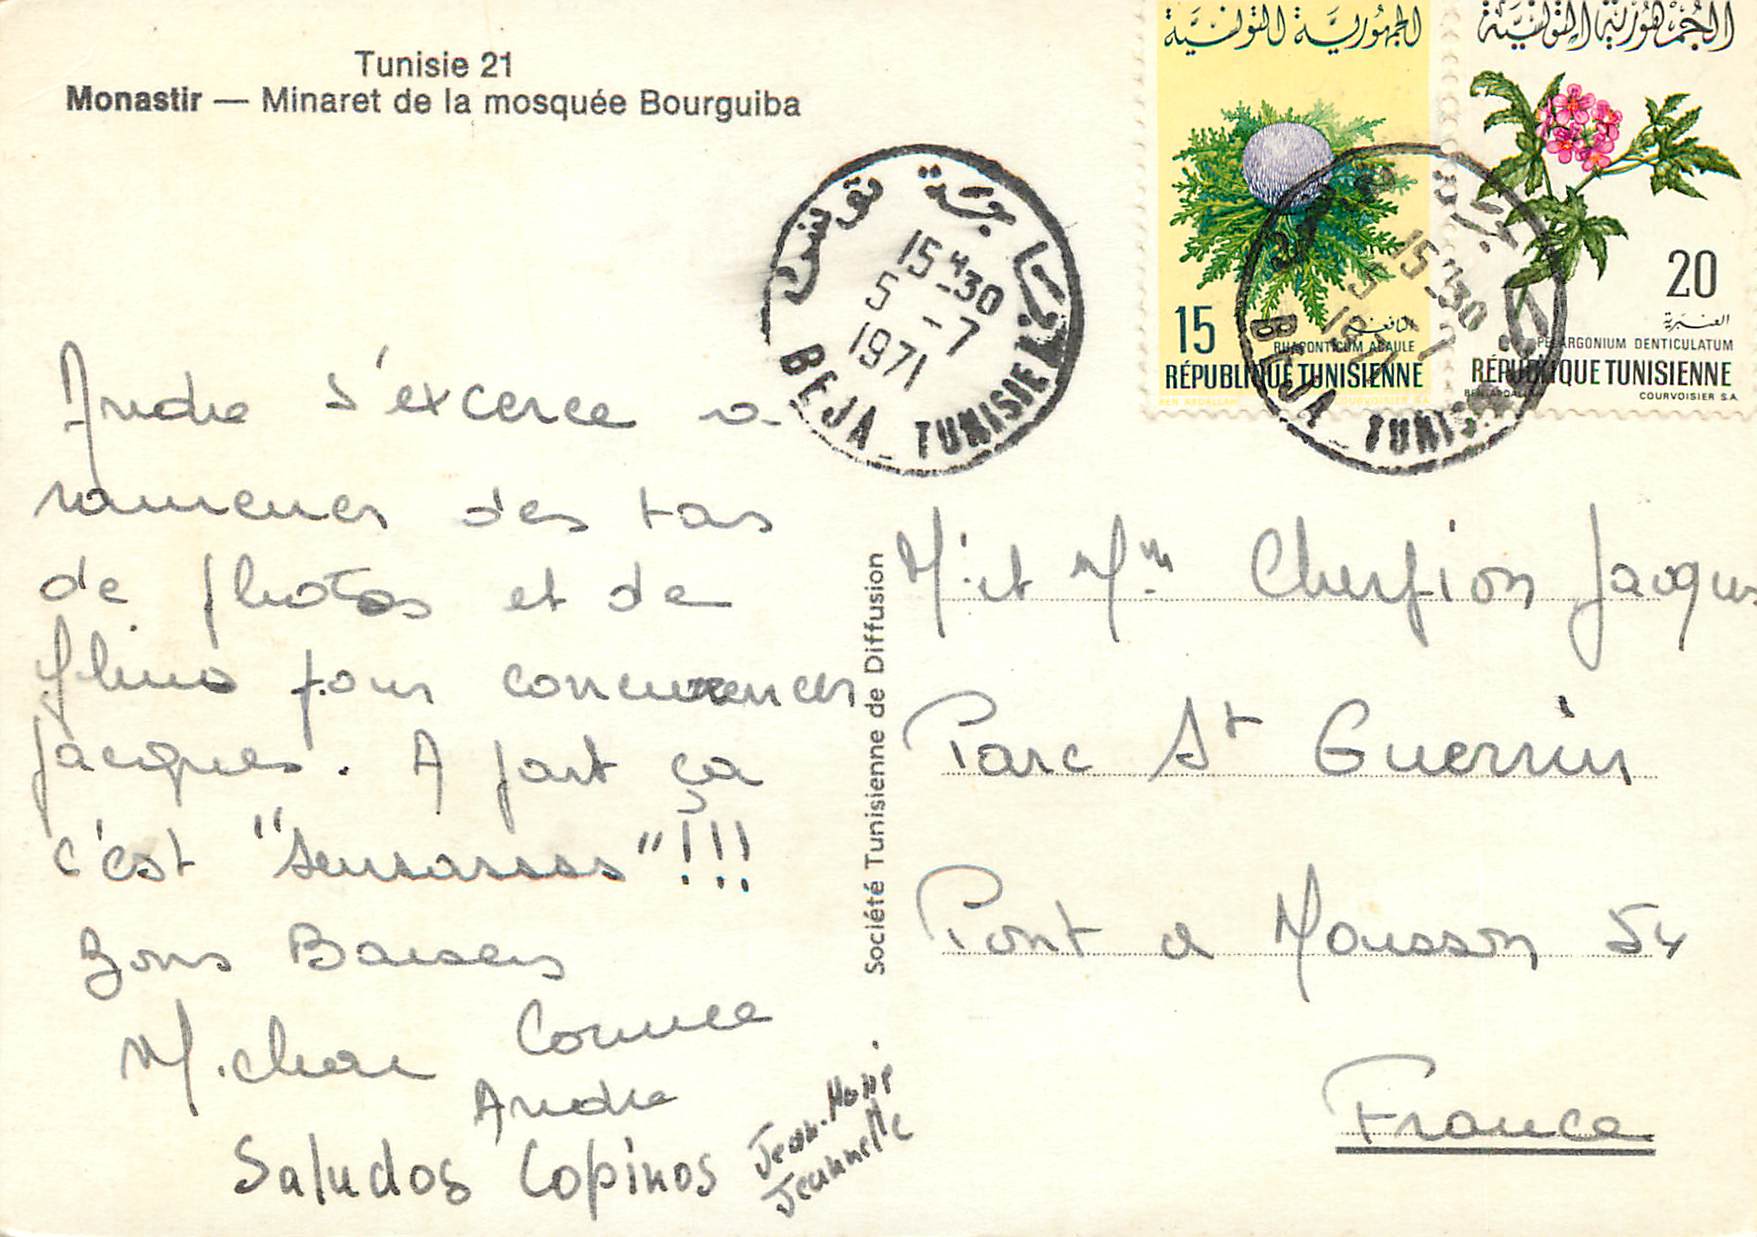 Tunisie 21
Monastir — Minaret de la mosquée Bourguiba
Andre s'excerce a
ramener des tas
de photos et de
films pour concurrencer
Jacques. A part ça
c'est "sensasss"!!!
Bons Baisers
Michou Corinne
Andre
Saludos Copinos
Jean-Marie
Jeannette
Société Tunisienne de Diffusion
باجة تونس
15H30
5-7
1971
BEJA - TUNISIE
الجمهورية التونسية
15
RHAPONTICUM ACAULE
RÉPUBLIQUE TUNISIENNE
COURVOISIER S.A.
الجمهورية التونسية
20
العنبرية
PELARGONIUM DENTICULATUM
RÉPUBLIQUE TUNISIENNE
COURVOISIER S.A.
15H30
5-7
1971
BEJA - TUNIS
Mr et Mme Cherfion Jacques
Parc St Guerrin
Pont a Mousson 54
France